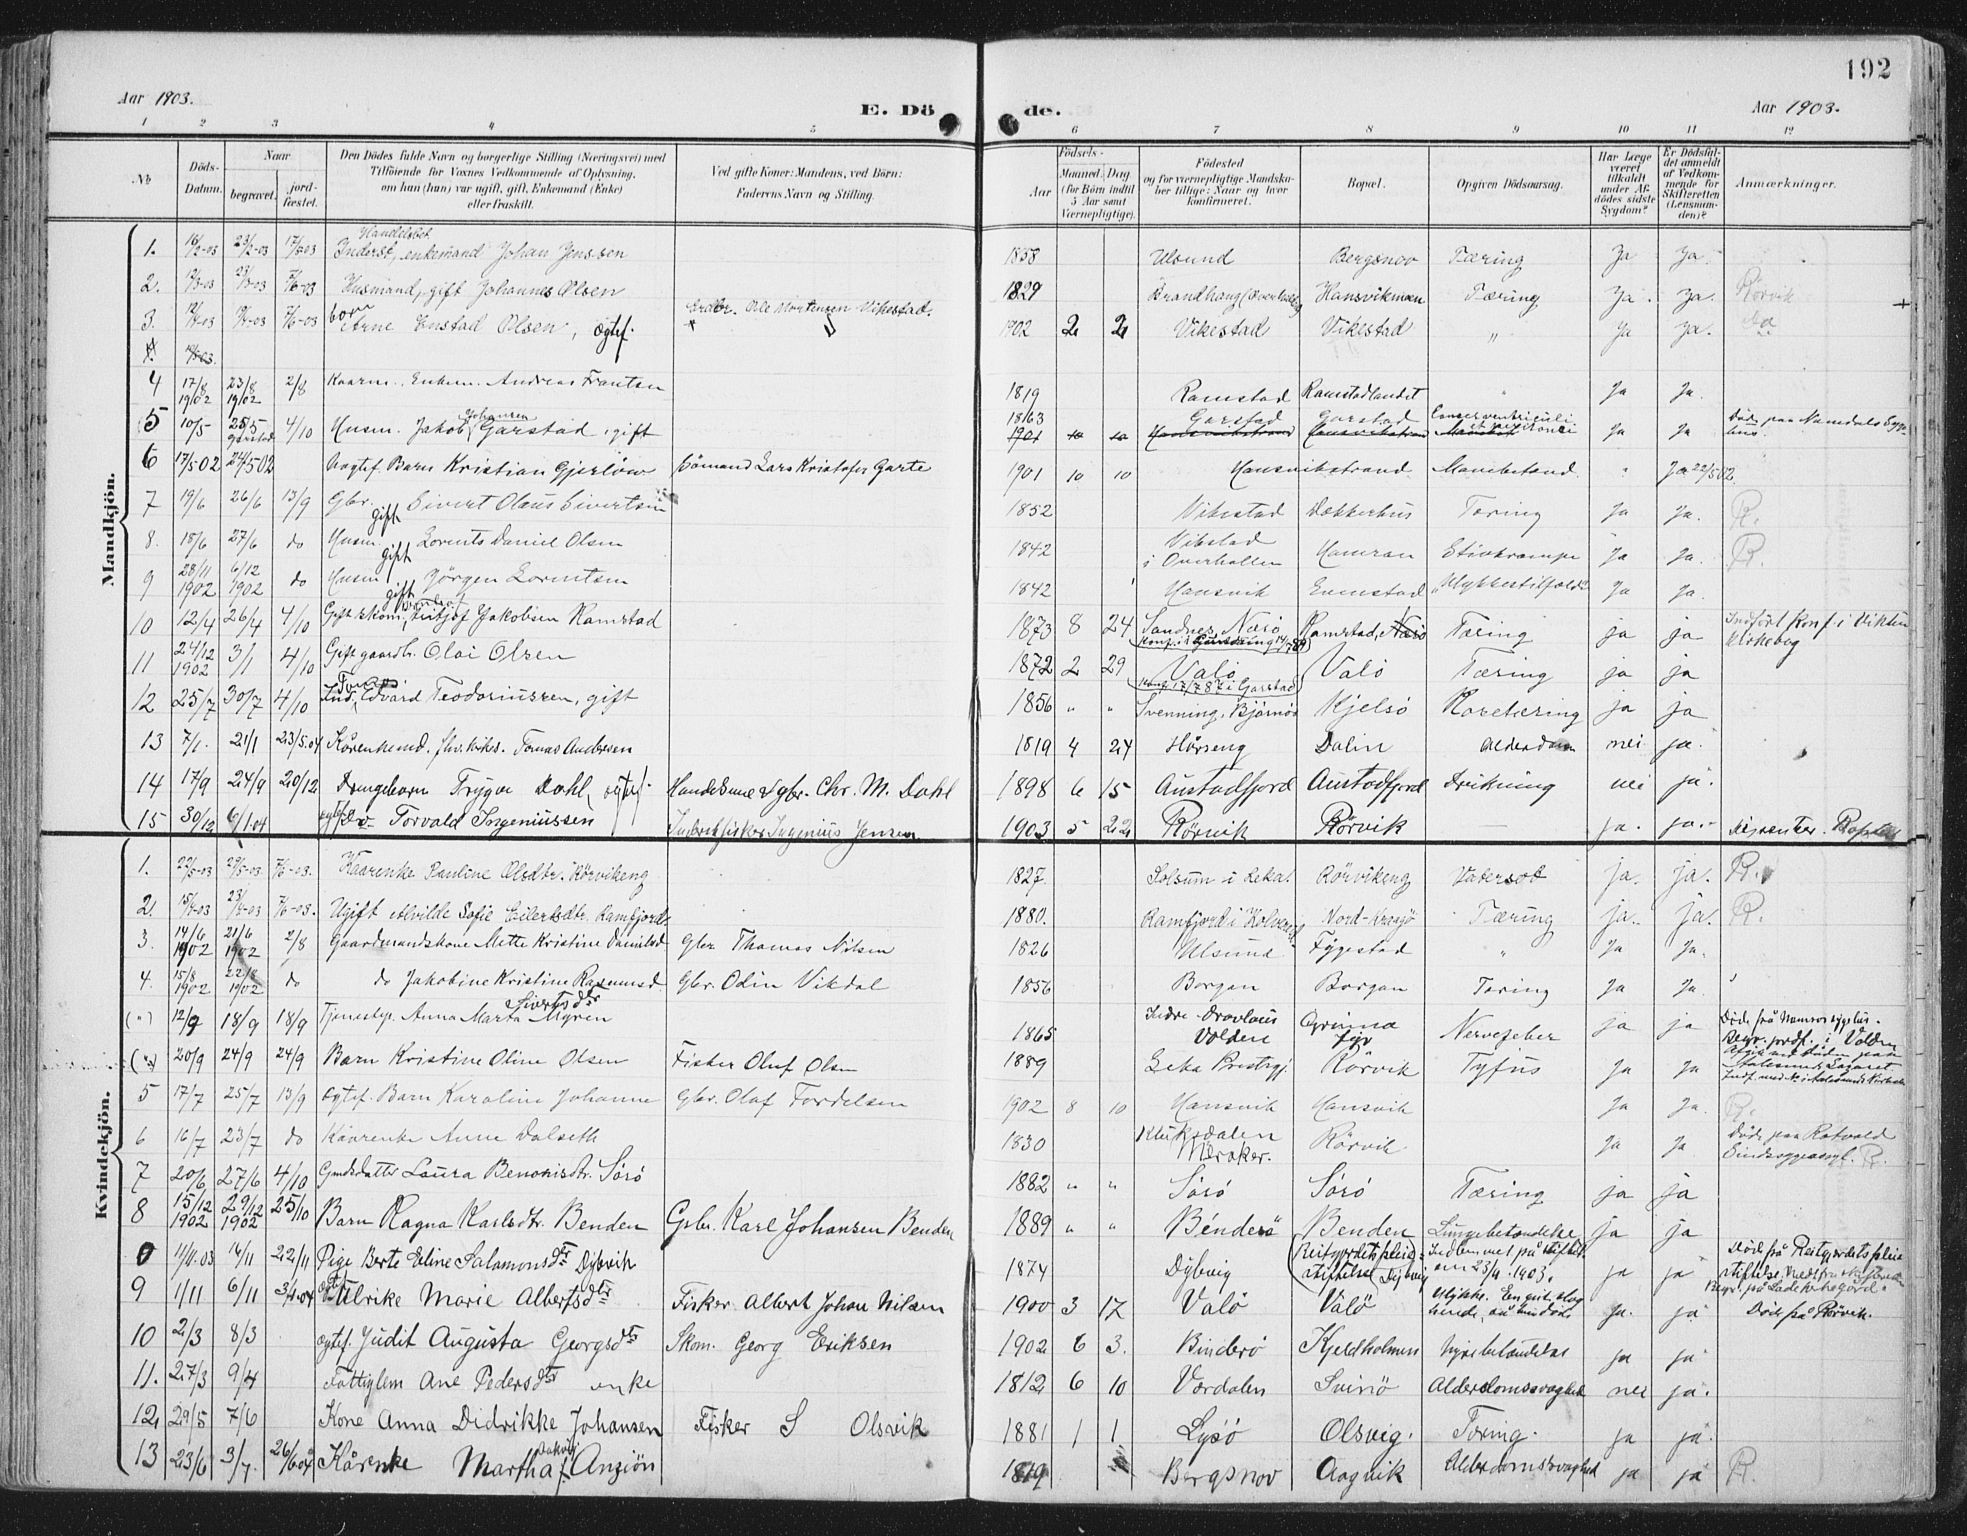 192
Aar 1903.
E. Dö de.
Aar 1903.
1 2 3 4 5 6 7 8 9 10 11 12
No
Döds-Datum.
Naar
begravet.
jord-fæstet.
Den Dödes fulde Navn og borgerlige Stilling (Næringsvei) med
Tilföiende for Voxnes Vedkommende af Oplysning,
om han (hun) var ugift, gift, Enkemand (Enke)
eller fraskilt.
Ved gifte Koner: Mandens, ved Börn:
Faderens Navn og Stilling.
Födsels-
Aar
Maaned. Dag
(for Börn indtil
5 Aar samt
Værnepligtige).
Födested
og for værnepligtige Mandska-
ber tillige: Naar og hvor
konfirmeret.
Bopæl.
Opgiven Dödsaarsag.
Har Læge
været
tilkaldt
under Af-
dödes sidste
Sygdom?
Er Dödsfal-
det anmeldt
af Vedkom-
mende for
Skifteretten
(Lensman-
den)?
Anmærkninger.
Mandkjön.
1. 16/2-03 23/2-03 17/5-03 Inderst, Handelsbet. enkemand Johan Jenssen 1858 Ulsund Bergsnov Tæring Ja Ja.
2. Husmand, gift Johannes Olsen 1829 Hansvikmoen Tæring Ja. Ja. Rörvik
3. barn Arne Enstad Olsen, ægtef. Ole Mortensen Vikestad. 1902 2 2 Vikestad Vikestad " Ja Ja. Do.
4 17/8 1902 23/8 1902 2/8 Kaarm. Enkem. Andreas Frantsen 1819 Ramstad Ramstadlandet " Ja Ja.
5 10/5 25/5 Garstad 4/10 Husm. Jakob Johansen Garstad, gift 1863 Garstad Garstad Cancer ventriculi Ja Ja Döde paa Namdals Syge hus.
6 17/5 02 24/5 02 Uægtef. Barn Kristian Gjerlöw Sömand Lars Kristofer Garte 1901 10 10 Hansvikstrand " Ja 22/5 02.
7 19/6 26/6 13/9 Gbr. gift Sivert Olaus Sivertsen 1852 Vikestad Dekkerhus Tæring Ja Ja. R.
8. 18/6 27/6 do Husm. gift Lorents Daniel Olsen 1842 Vikestad i Overhallen Hamran Stivkrampe Ja Ja. R.
9 28/11 1902 6/12 1902 do Husm gift Jörgen Lorentsen 1842 Hansvik Evenstad Ulykkestilfælde Ja Ja.
10 12/4 26/4 4/10 Gift skom. Fritjof Jakobsen Ramstad 1873 8 24 Sandnes, Nærö Ramstad, Nærö Tæring ja ja Indfört konf. i Vikten Kirkebog
11 24/12 1902 3/1 4/10 Gift gaardb. Olai Olsen 1872 2 29 Valö Konf. 17/7 87 i Garstad Valö Tæring ja ja
12 25/7 30/7 4/10 Ind. Edvard Teodoriussen, gift 1856 " " Svenning, Bjørnör Kjelsö Köretæring ja ja
13 7/1. 21/1 23/5.04 Kårenkemd. Tomas Andresen 1819 4 24 Hårseng Dalin Alderdom nei ja.
14 17/9 24/9 20/12 Drengebarn Trygve Dahl, ægtef. Handelsmæ & gbr. Chr. M. Dahl 1898 6 15 Austadfjord Austadfjord Drukning nei ja.
15 30/12 6/1.04 Torvald Ingeniussen Inderst fisker Ingenius Jensen 1903 5 22 Rörvik Rörvik — ja. ja.
Kvindekjön.
1. 22/5-03 29/5-03 7/6-03. Kaarenke Pauline Olsdtr. Rörvikeng 1827. Solsum i Leka. Rörvikeng Vatersot ja. ja. R.
2. 15/4-03 23/4-03 7/6-03. Ugift Alvilde Sofie Eilertsdtr. Ramfjord 1880. Ramfjord i Kolvereid Nord-Kraagö Tæring ja. ja. R.
3. 14/6 1902 21/6 1902 2/8 Gaardmandskone Mette Kristine Danielsd. Gbr Thomas Nilsen 1826 Ulsund Fygestad " Ja Ja.
4. 15/8 1902 22/8 1902 do do Jakobine Kristine Rasmusd. Gbr. Odin Vikdal 1856 Borgan Borgan Tæring Ja Ja.
(") 12/9 18/9 18/9 Tjenestep. Anna Marta Sivertsdtr Myren 1865 Indre-Dravlaus Volden Grinna fyr Nervefeber ja ja Döde frå Namsos sygehus. Begr. jordf. i Volden
(") 20/9 24/9 24/9 Barn Kristine Oline Olsen Fisker Oluf Olsen 1889 Leka Prestegj. Rörvik Tyfus Ja Ja
5 17/7 25/7 13/9 Ægtef. Barn Karoline Johanne Gbr. Olaf Fordelsen 1902 8 10 Hansvik Hansvik Ja Ja. R.
6 16/7 23/7 do Kaarenke Anne Dalseth 1830 Kluksdalen Meraker. Rörvik Ja Ja. Döde paa Rotvold Sindssygeasyl. R.
7 20/6 27/6 4/10 Gmdsdatter Laura Benonisdtr. Sörö 1882 " " Sörö Sörö Tæring ja ja
8 15/12 1902 29/12 1902 25/10 Barn Ragna Karlsdtr. Benden Gbr. Karl Johansen Benden 1889 " " Benderö Benden Lungebetændelse ja ja
0 11/11.03 14/11 22/11 Pige Berte Eline Salamonsdtr Dybvik 1874 Dybvig Reitgjerdets pleiestiftelse (Dybvig) Indlemmet på stiftels. ja ja Döde frå Reitgjerdets pleiestiftelse
9 1/11 6/11 3/1.04 Ulrike Marie Albertsdtr Fisker Albert Johan Nilsen 1900 3 17 Valö Valö ja. ja Döde på Rörvik.
10 2/3 8/3 Ægtef. Judit Augusta Georgsdtr Skom. Georg Eriksen 1902 6 3. Binderö Kjeldholmen Nyrebetændelse ja ja
11. 27/3 9/4 Fattiglem Ane Pedersdtr enke 1812 6 10 Værdalen Svinö Alderdomssvaghed nei ja.
12 29/5 7/6 Kone Anna Didrikke Johansen Fisker S Olsvik 1881 1 1 Lysö Olsvig. Tæring. ja ja.
13 23/6 3/7. 26/6 04 Kårenke Martha Jakobs Anziön 1819 Bergsnov Aagvik Alderdomssvaghed ja ja R.